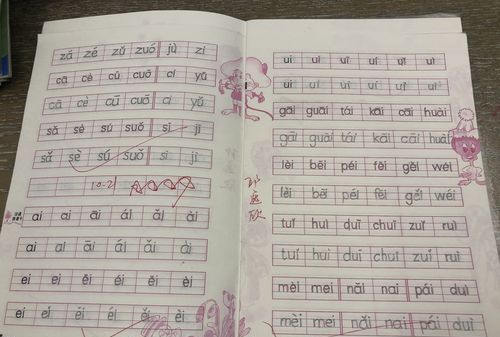 zǎ zé zǔ zuó jǔ zi
cā cè cū cuō ci yǔ
cā cè cū cuō ci yǔ
sǎ sè sú suǒ si jī
sǎ sè sú suǒ si jī
10.2
ai ai āi ái ǎi ài
ai ai āi ái ǎi ài
ei ei ēi éi ěi èi
ei ei ēi éi ěi èi
ui ui uī uí uǐ uì
ui ui uī uí uǐ uì
gāi guāi tái kāi cāi huài
gāi guāi tái kāi cāi huài
lèi bēi péi fēi gěi wéi
lèi bēi péi fēi gěi wéi
tuǐ huì duī chuī zuǐ ruì
tuǐ huì duī chuī zuǐ ruì
mèi mei nǎi nai pái duì
mèi mei nǎi nai pái duì